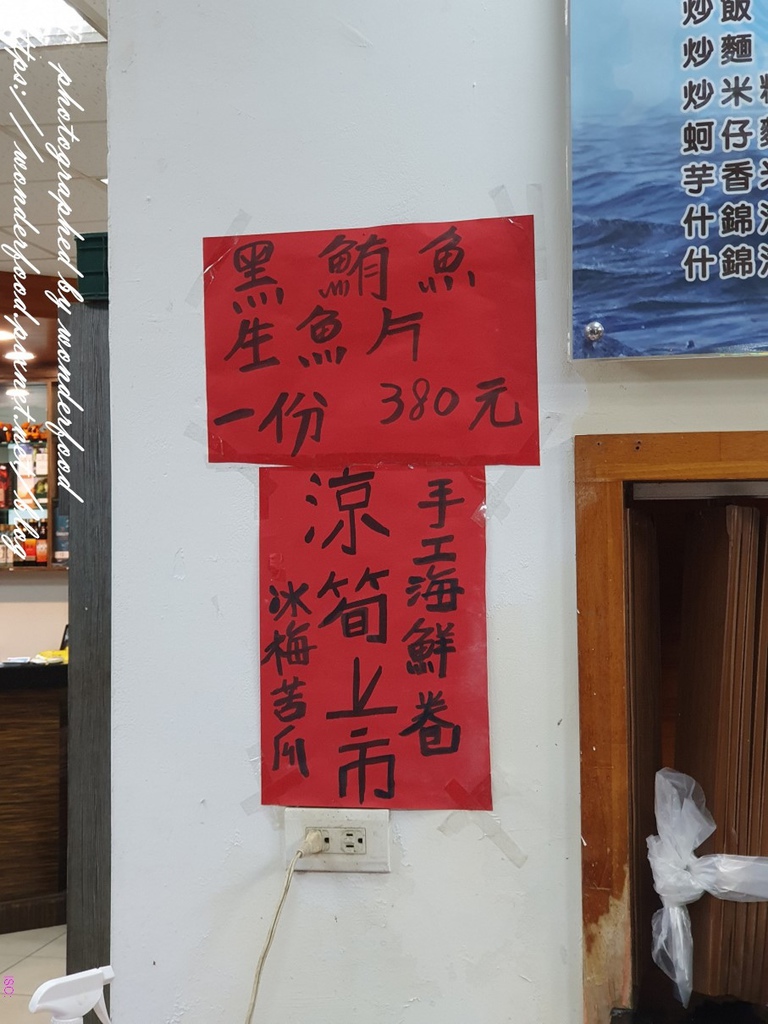 黑鮪魚
生魚片
一份 380元
手工海鮮卷
涼筍上市
冰梅苦瓜
飯麵米仔香錦錦
炒炒炒蚵芋什什
photographed by wonderfood
https://wonderfood.pixnet.net/blog
ISO: